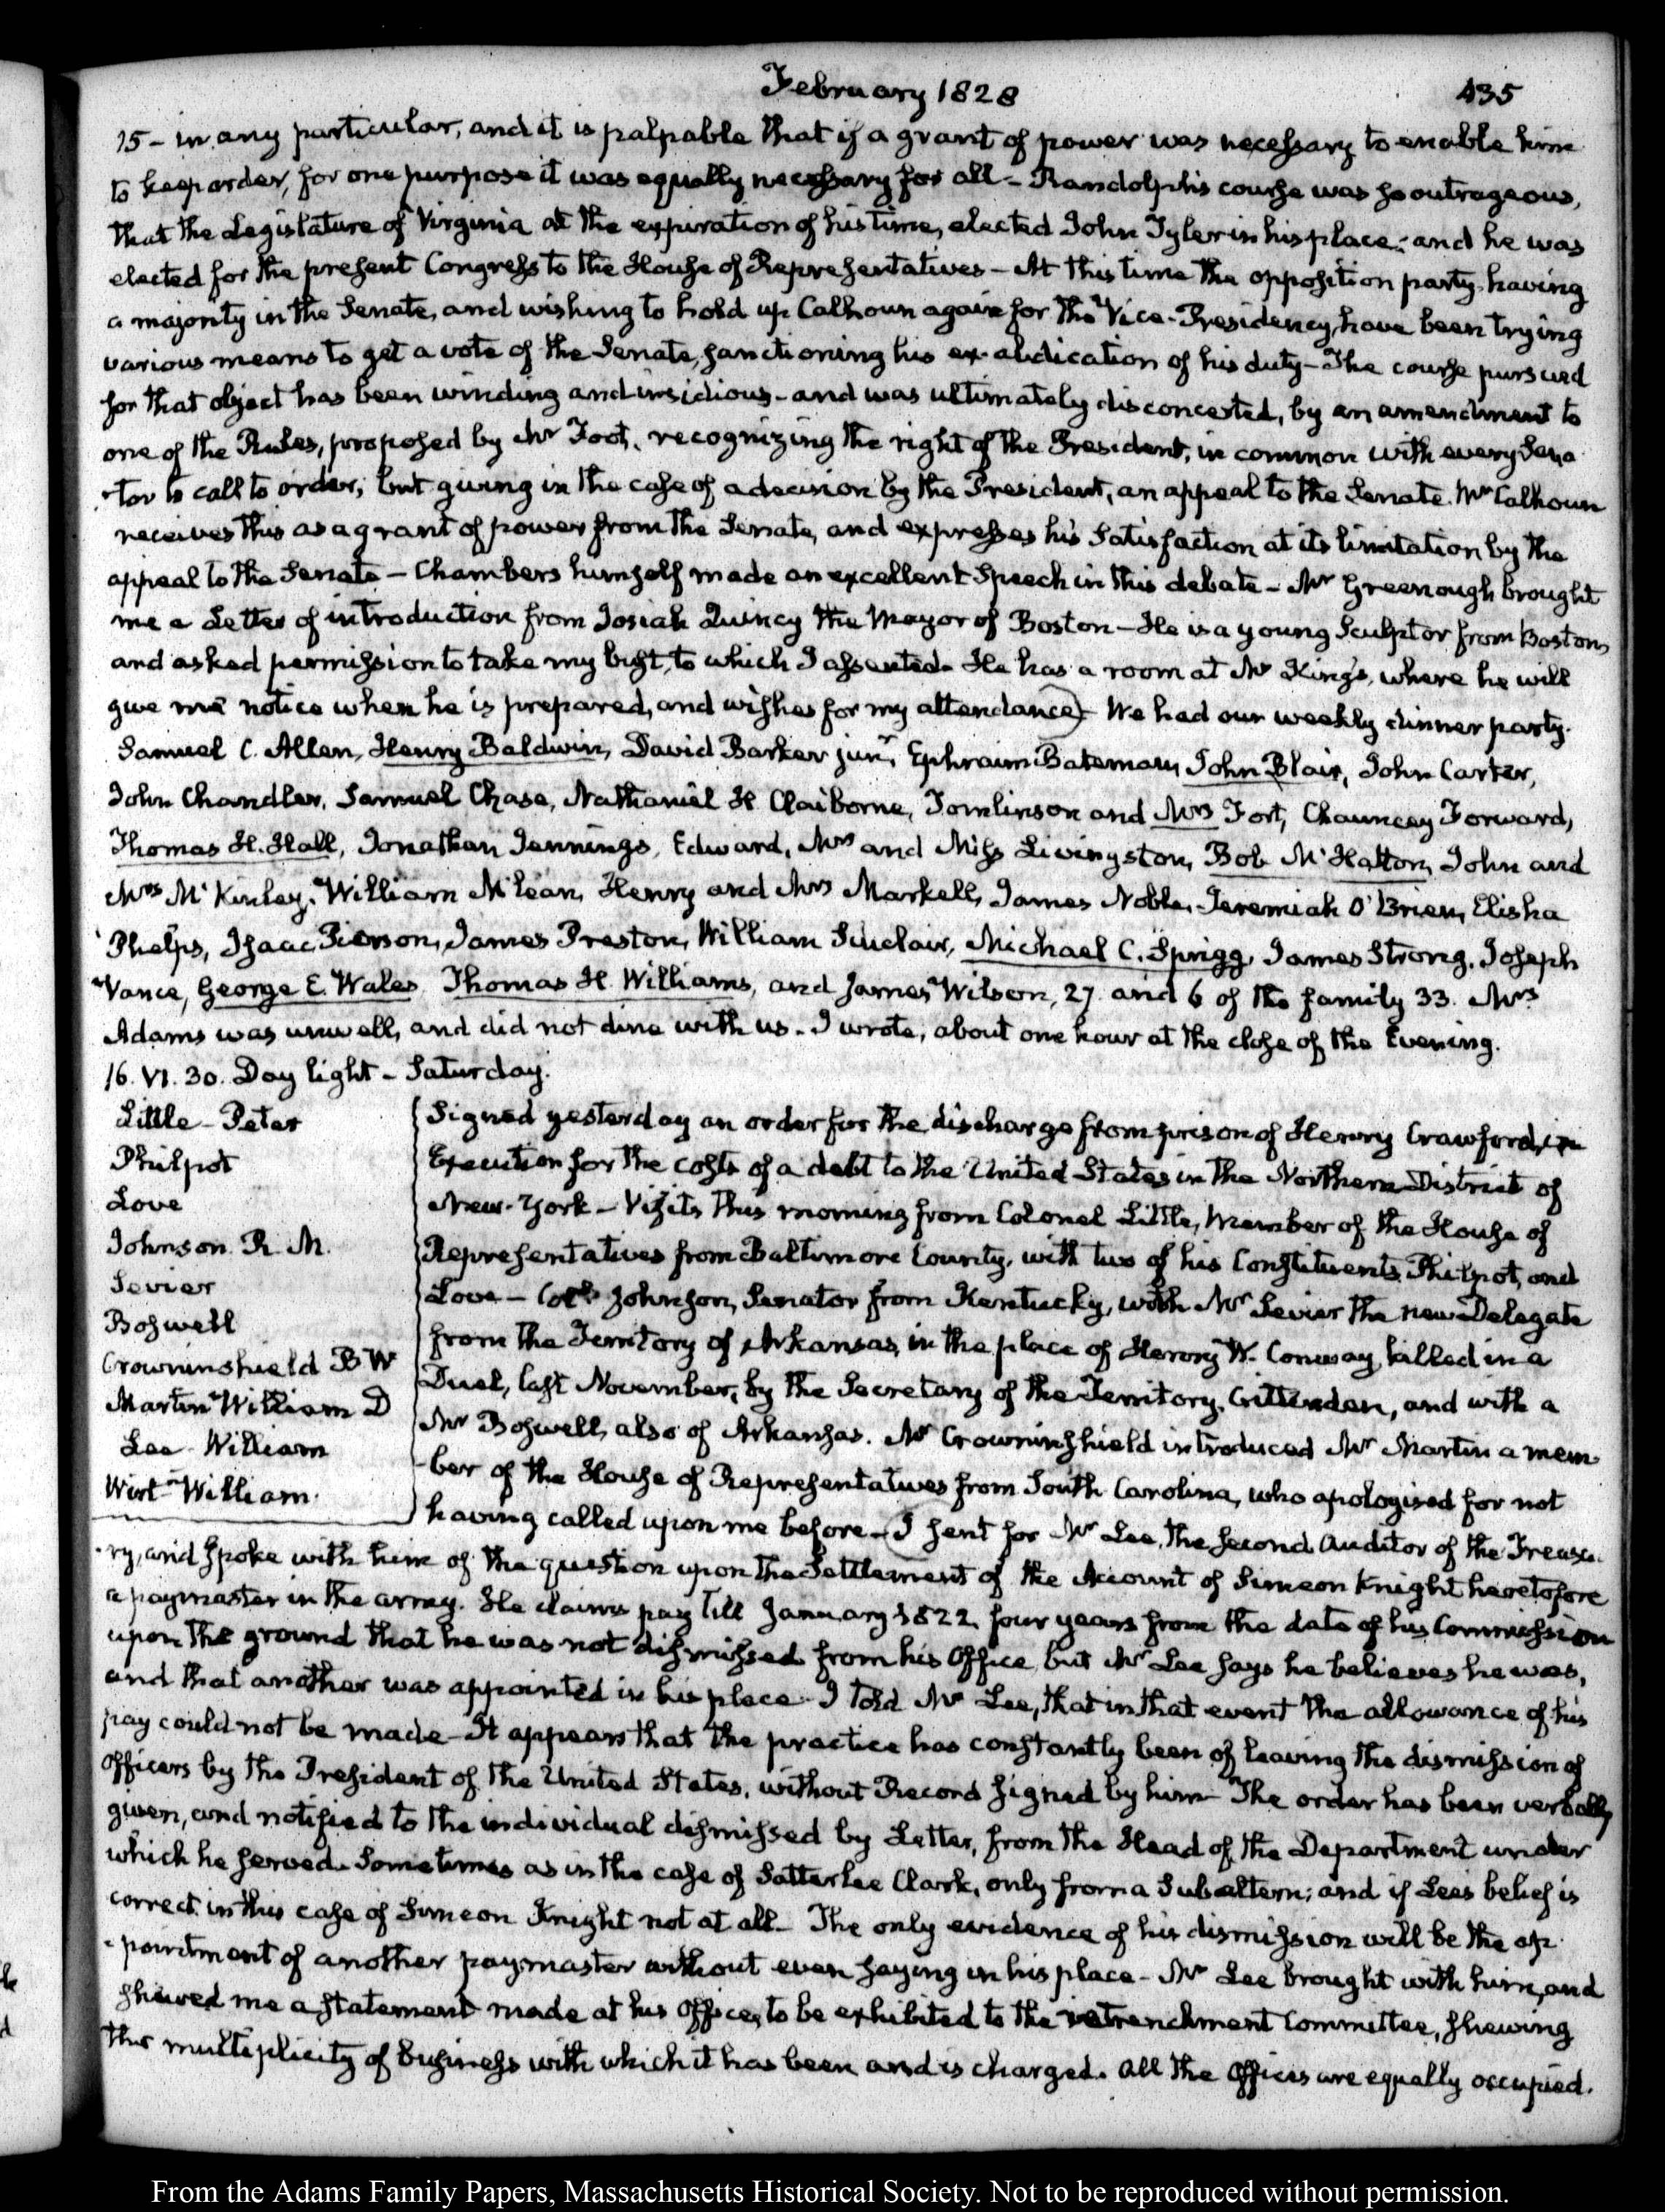 February 1828
435
15 - in any particular, and it is palpable that if a grant of power was necessary to enable him
to keep order, for one purpose it was equally necessary for all - Randolph's course was so outrageous,
that the Legislature of Virginia at the expiration of his time, elected John Tyler in his place; and he was
elected for the present Congress to the House of Representatives - At this time the opposition party having
a majority in the Senate, and wishing to hold up Calhoun again for the Vice-Presidency, have been trying
various means to get a vote of the Senate, sanctioning his ex-abdication of his duty - The course pursued
for that object has been winding and insidious - and was ultimately disconcerted, by an amendment to
one of the Rules, proposed by Mr Foot, recognizing the right of the President, in common with every Sena
-tor to call to order; but giving in the case of a decision by the President, an appeal to the Senate. Mr Calhoun
receives this as a grant of power from the Senate, and expresses his Satisfaction at its limitation by the
appeal to the Senate - Chambers himself made an excellent Speech in this debate - Mr Greenough brought
me a Letter of introduction from Josiah Quincy the Mayor of Boston - He is a young Sculptor from Boston,
and asked permission to take my bust, to which I assented. He has a room at Mr King's, where he will
give me notice when he is prepared, and wishes for my attendance) - We had our weekly dinner party.
Samuel C. Allen, Henry Baldwin, David Barker junr, Ephraim Bateman, John Blair, John Carter,
John Chandler, Samuel Chase, Nathaniel H Claiborne, Tomlinson and Mrs Fort, Chauncey Forward,
Thomas H. Hall, Jonathan Jennings, Edward, Mrs and Miss Livingston, Bob McHatton, John and
Mrs McKinley, William McLean, Henry and Mrs Markell, James Noble, Jeremiah O'Brien, Elisha
Phelps, Isaac Pierson, James Preston, William Sinclair, Michael C. Sprigg, James Strong, Joseph
Vance, George E. Wales, Thomas H. Williams, and James Wilson, 27 and 6 of the family 33. Mrs
Adams was unwell, and did not dine with us. I wrote, about one hour at the close of the Evening.
16. VI. 30. Day light - Saturday.
Little - Peter
Philpot
Love
Johnson R. M.
Sevier
Boswell
Crowninshield B W
Martin William D
Lee William
Wirt - William.
Signed yesterday an order for the discharge from prison of Henry Crawford, in
Execution for the costs of a debt to the United States in the Northern District of
New-York - Visits this morning from Colonel Little, Member of the House of
Representatives from Baltimore County, with two of his Constituents, Philpot, and
Love - Coll Johnson, Senator from Kentucky, with Mr Sevier the new Delegate
from the Territory of Arkansas, in the place of Henry W. Conway, killed in a
Duel, last November, by the Secretary of the Territory, Crittenden, and with a
Mr Boswell, also of Arkansas. Mr Crowninshield introduced Mr Martin a mem
-ber of the House of Representatives from South Carolina, who apologised for not
having called upon me before - I sent for Mr Lee, the second Auditor of the Treasu
-ry, and spoke with him of the question upon the Settlement of the Account of Simeon Knight heretofore
a paymaster in the army. He claims pay till January 1822 four years from the date of his Commission
upon the ground that he was not dismissed from his Office, but Mr Lee says he believes he was,
and that another was appointed in his place - I told Mr Lee, that in that event the allowance of his
pay could not be made - It appears that the practice has constantly been of leaving the dismission of
Officers by the President of the United States, without Record signed by him - The order has been verbally
given, and notified to the individual dismissed by Letter, from the Head of the Department under
which he served. Sometimes as in the case of Satterlee Clark, only from a Subaltern; and if Lee's belief is
correct in this case of Simeon Knight not at all - The only evidence of his dismission will be the ap
-pointment of another paymaster without even saying in his place - Mr Lee brought with him, and
shewed me a statement made at his Office, to be exhibited to the retrenchment Committee, shewing
the multiplicity of business with which it has been and is charged. All the Offices are equally occupied.
From the Adams Family Papers, Massachusetts Historical Society. Not to be reproduced without permission.